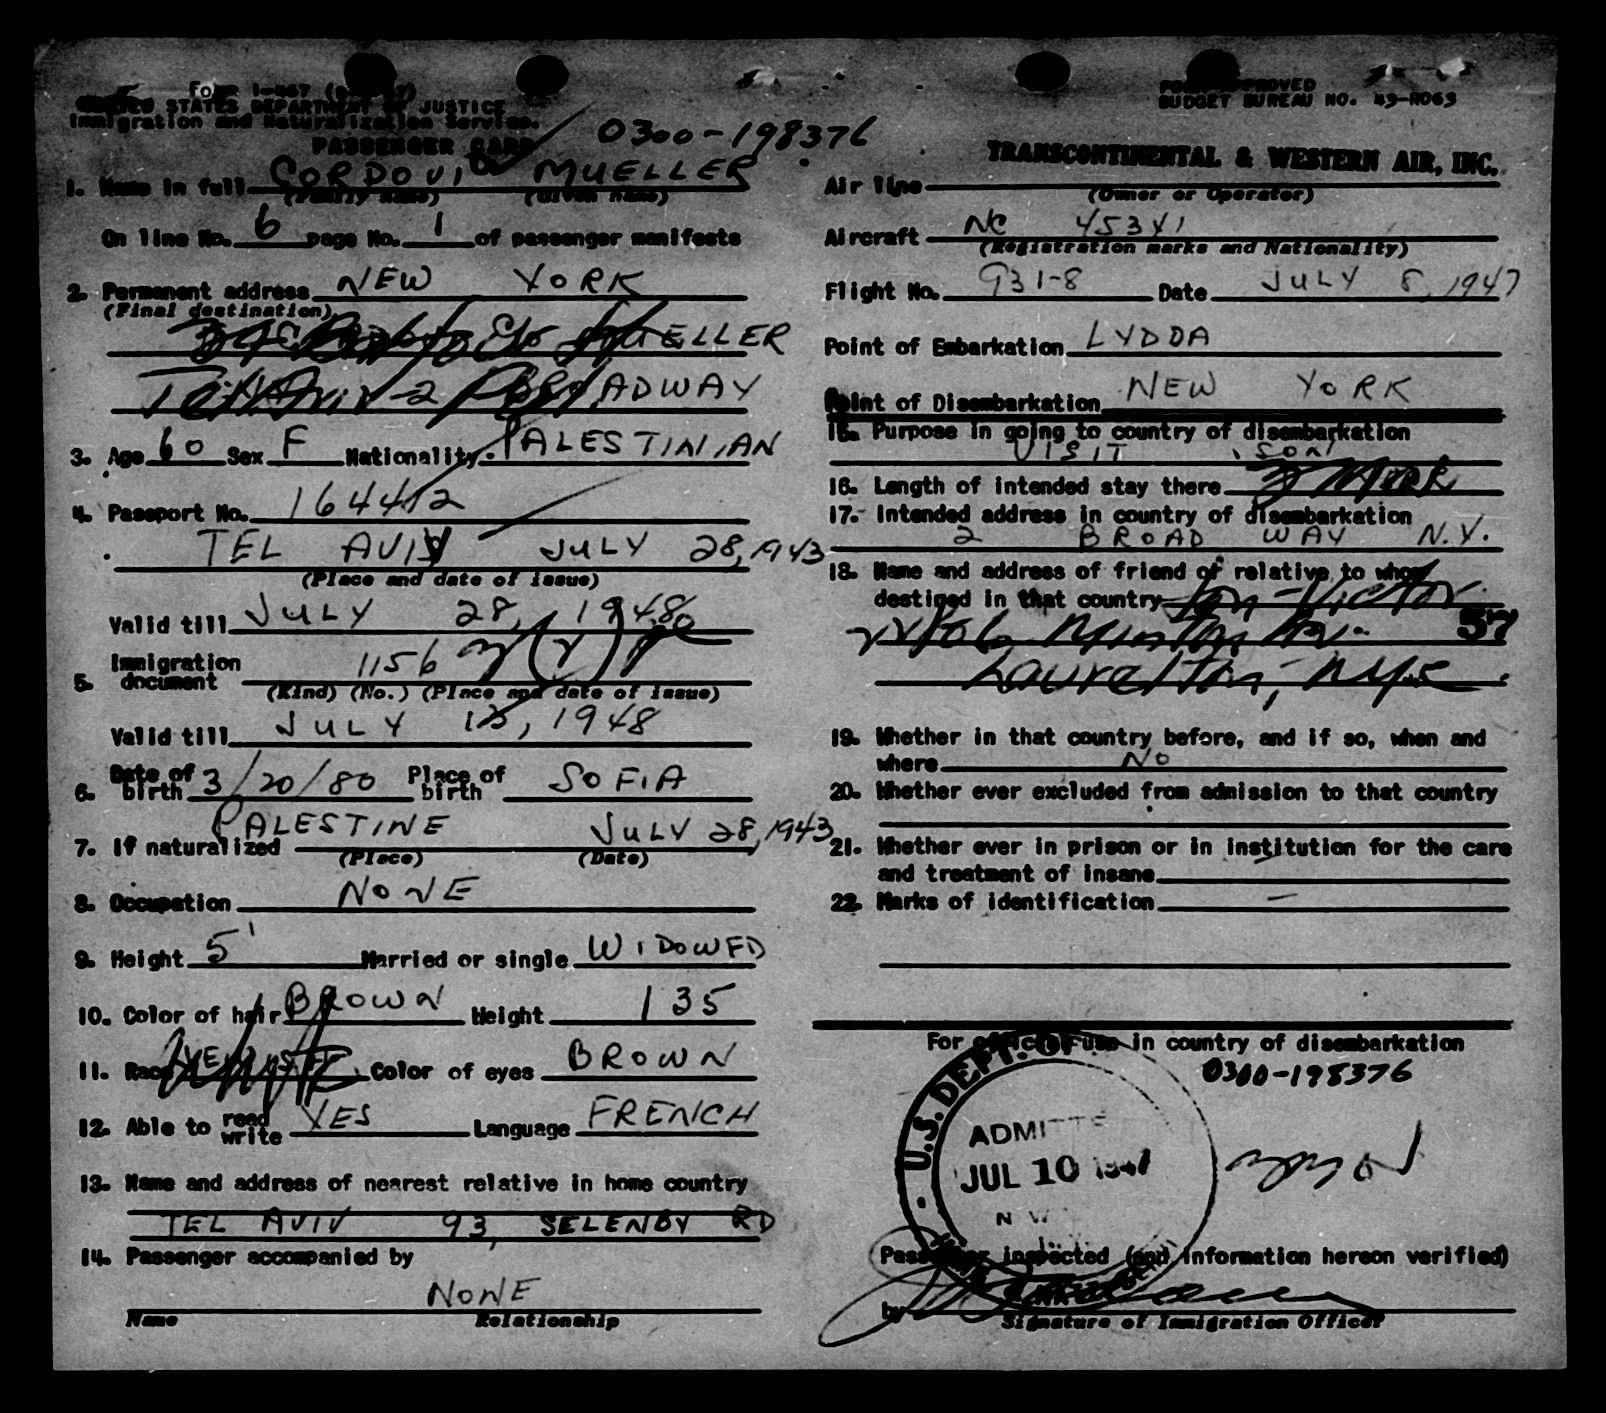 Form I-467
UNITED STATES DEPARTMENT OF JUSTICE
Immigration and Naturalization Service.
PASSENGER CARD
0300-198376
1. Name in full CORDOVI MUELLER
(Family name) (Given name)
On line No. 6 page No. 1 of passenger manifests
2. Permanent address NEW YORK
(Final destination)
MUELLER
Tel Aviv 2 BROADWAY
3. Age 60 Sex F Nationality PALESTINIAN
4. Passport No. 164412
TEL AVIV JULY 28, 1943
(Place and date of issue)
Valid till JULY 28, 1948
5. Immigration document 1156
(Kind) (No.) (Place and date of issue)
Valid till JULY 13, 1948
6. Date of birth 3/20/80 Place of birth SOFIA
7. If naturalized PALESTINE JULY 28, 1943
(Place) (Date)
8. Occupation NONE
9. Height 5' Married or single WIDOWED
10. Color of hair BROWN Weight 135
11. Race White Color of eyes BROWN
12. Able to read write YES Language FRENCH
13. Name and address of nearest relative in home country
TEL AVIV 93, SELENBY RD
14. Passenger accompanied by
NONE
Name Relationship
FORM APPROVED
BUDGET BUREAU NO. 43-R063
TRANSCONTINENTAL & WESTERN AIR, INC.
Air line
(Owner or Operator)
Aircraft NC 45341
(Registration marks and Nationality)
Flight No. 931-8 Date JULY 8, 1947
Point of Embarkation LYDDA
Point of Disembarkation NEW YORK
15. Purpose in going to country of disembarkation
VISIT SON
16. Length of intended stay there
17. Intended address in country of disembarkation
2 BROAD WAY N.Y.
18. Name and address of friend or relative to whom
destined in that country Son - Victor
57
Laurelton, NY
19. Whether in that country before, and if so, when and
where NO
20. Whether ever excluded from admission to that country
21. Whether ever in prison or in institution for the care
and treatment of insane
22. Marks of identification —
For official use in country of disembarkation
0300-198376
U.S. DEPT. OF
ADMITTED
JUL 10 1947
Passenger inspected (and information hereon verified)
by
Signature of Immigration Officer